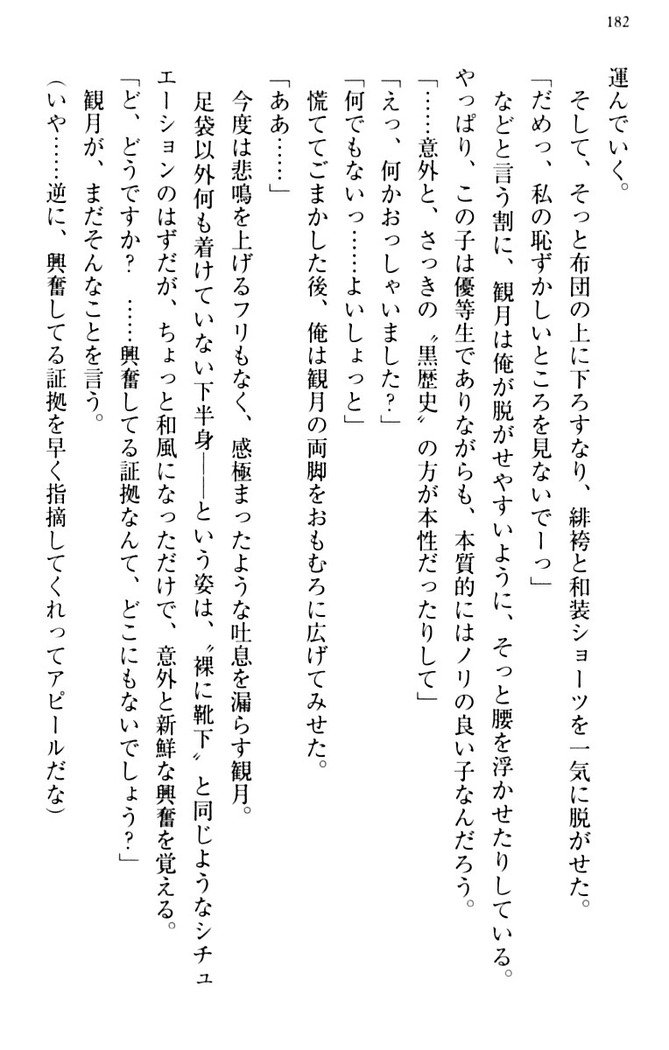 182
運んでいく。
そして、そっと布団の上に下ろすなり、緋袴と和装ショーツを一気に脱がせた。
「だめっ、私の恥ずかしいところを見ないでーっ」
などと言う割に、観月は俺が脱がせやすいように、そっと腰を浮かせたりしている。
やっぱり、この子は優等生でありながらも、本質的にはノリの良い子なんだろう。
「……意外と、さっきの〝黒歴史〟の方が本性だったりして」
「えっ、何かおっしゃいました?」
「何でもないっ……よいしょっと」
慌ててごまかした後、俺は観月の両脚をおもむろに広げてみせた。
「ああ……」
今度は悲鳴を上げるフリもなく、感極まったような吐息を漏らす観月。
足袋以外何も着けていない下半身――という姿は、〝裸に靴下〟と同じようなシチュ
エーションのはずだが、ちょっと和風になっただけで、意外と新鮮な興奮を覚える。
「ど、どうですか? ……興奮してる証拠なんて、どこにもないでしょう?」
観月が、まだそんなことを言う。
(いや……逆に、興奮してる証拠を早く指摘してくれってアピールだな)